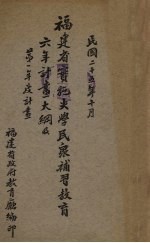 民國二十五年十月
福建省實施失學民眾補習教育
六年計畫大綱及
第一年度計畫
福建省政府教育廳編印